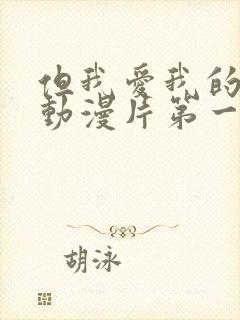 但我爱我的
動漫片第一
胡泳